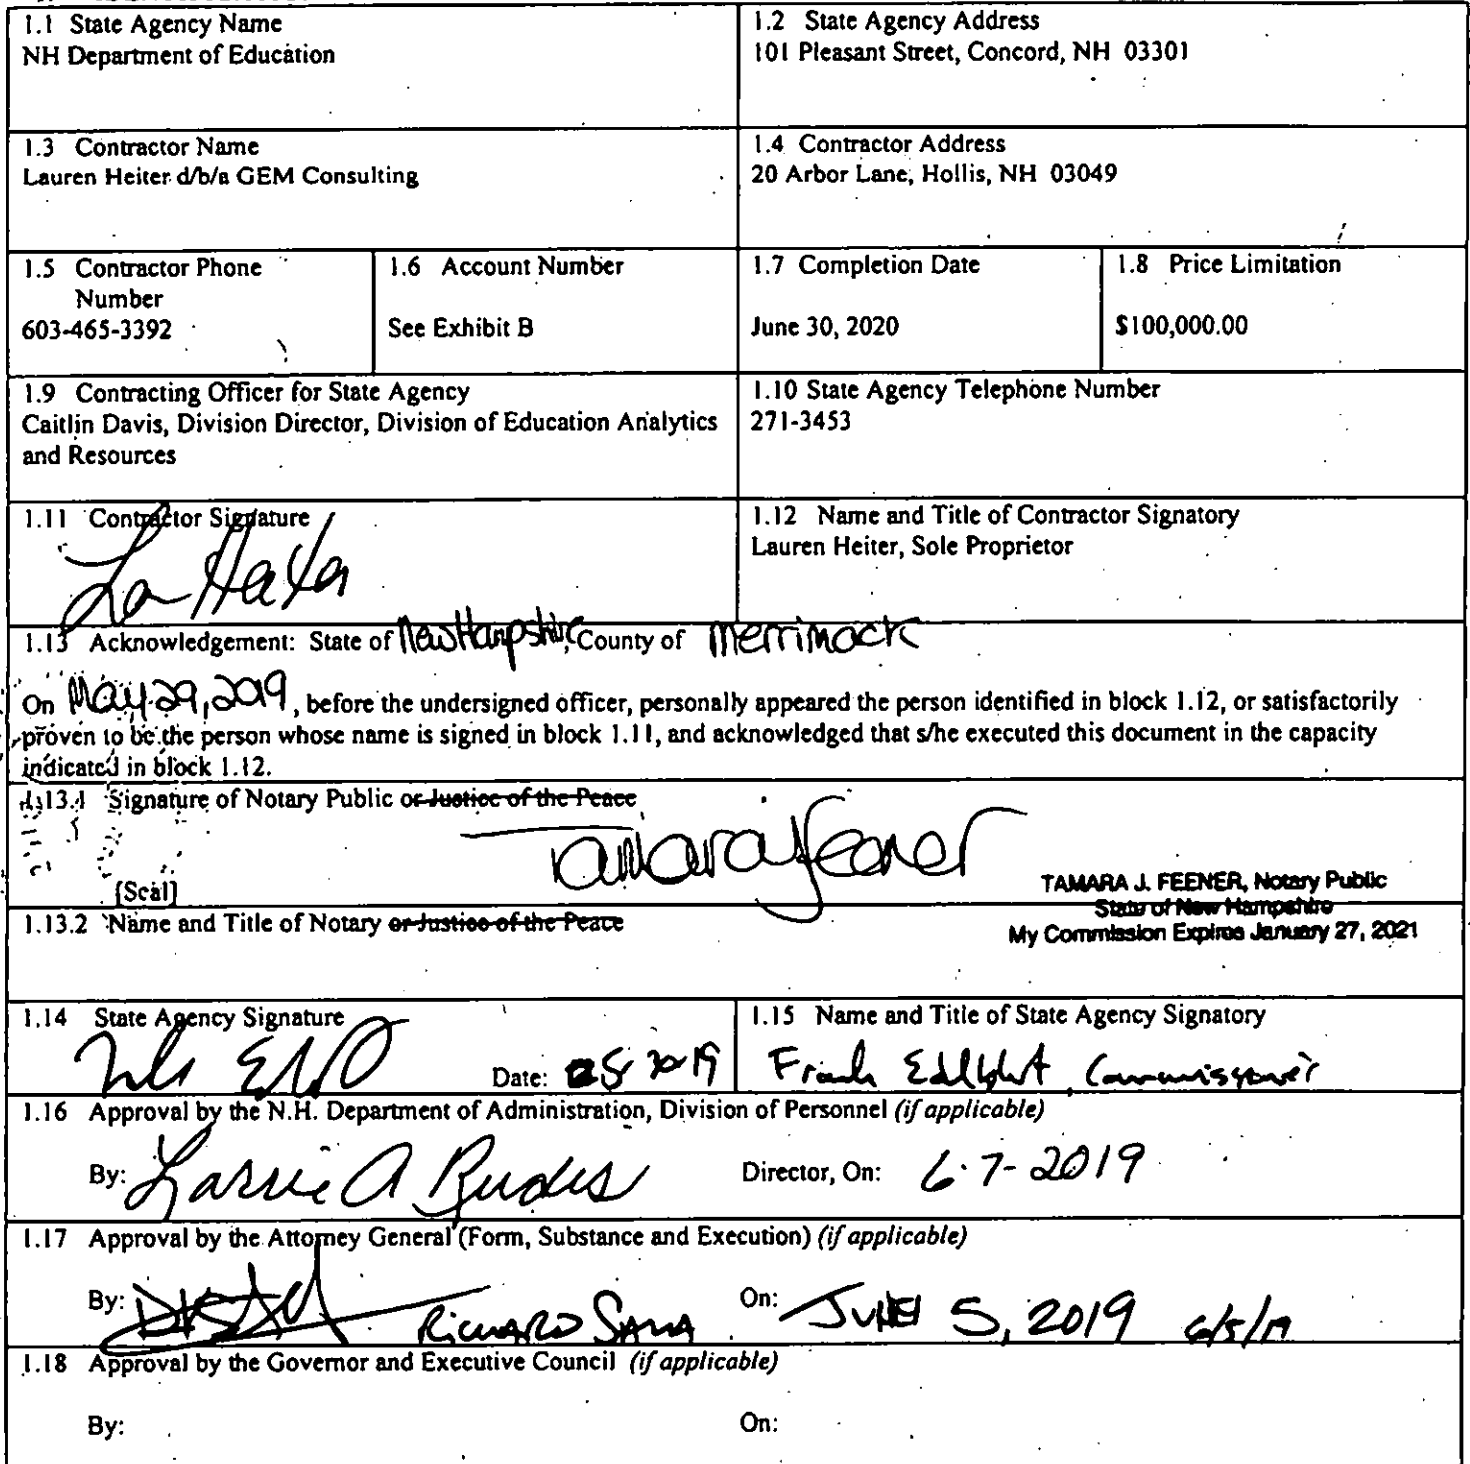 1.1 State Agency Name
NH Department of Education
1.2 State Agency Address
101 Pleasant Street, Concord, NH 03301
1.3 Contractor Name
Lauren Heiter d/b/a GEM Consulting
1.4 Contractor Address
20 Arbor Lane, Hollis, NH 03049
1.5 Contractor Phone
Number
603-465-3392
1.6 Account Number
See Exhibit B
1.7 Completion Date
June 30, 2020
1.8 Price Limitation
$100,000.00
1.9 Contracting Officer for State Agency
Caitlin Davis, Division Director, Division of Education Analytics
and Resources
1.10 State Agency Telephone Number
271-3453
1.11 Contractor Signature
1.12 Name and Title of Contractor Signatory
Lauren Heiter, Sole Proprietor
1.13 Acknowledgement: State of New Hampshire, County of Merrimack
On May 29, 2019, before the undersigned officer, personally appeared the person identified in block 1.12, or satisfactorily
proven to be the person whose name is signed in block 1.11, and acknowledged that s/he executed this document in the capacity
indicated in block 1.12.
1.13.1 Signature of Notary Public or Justice of the Peace
Tamara J Feener
[Seal]
TAMARA J. FEENER, Notary Public
State of New Hampshire
My Commission Expires January 27, 2021
1.13.2 Name and Title of Notary or Justice of the Peace
1.14 State Agency Signature
Date:
1.15 Name and Title of State Agency Signatory
Frank Edelblut, Commissioner
1.16 Approval by the N.H. Department of Administration, Division of Personnel (if applicable)
By: Director, On: 6-7-2019
1.17 Approval by the Attorney General (Form, Substance and Execution) (if applicable)
By: RICHARD SALA On: JUNE 5, 2019 6/5/19
1.18 Approval by the Governor and Executive Council (if applicable)
By: On: